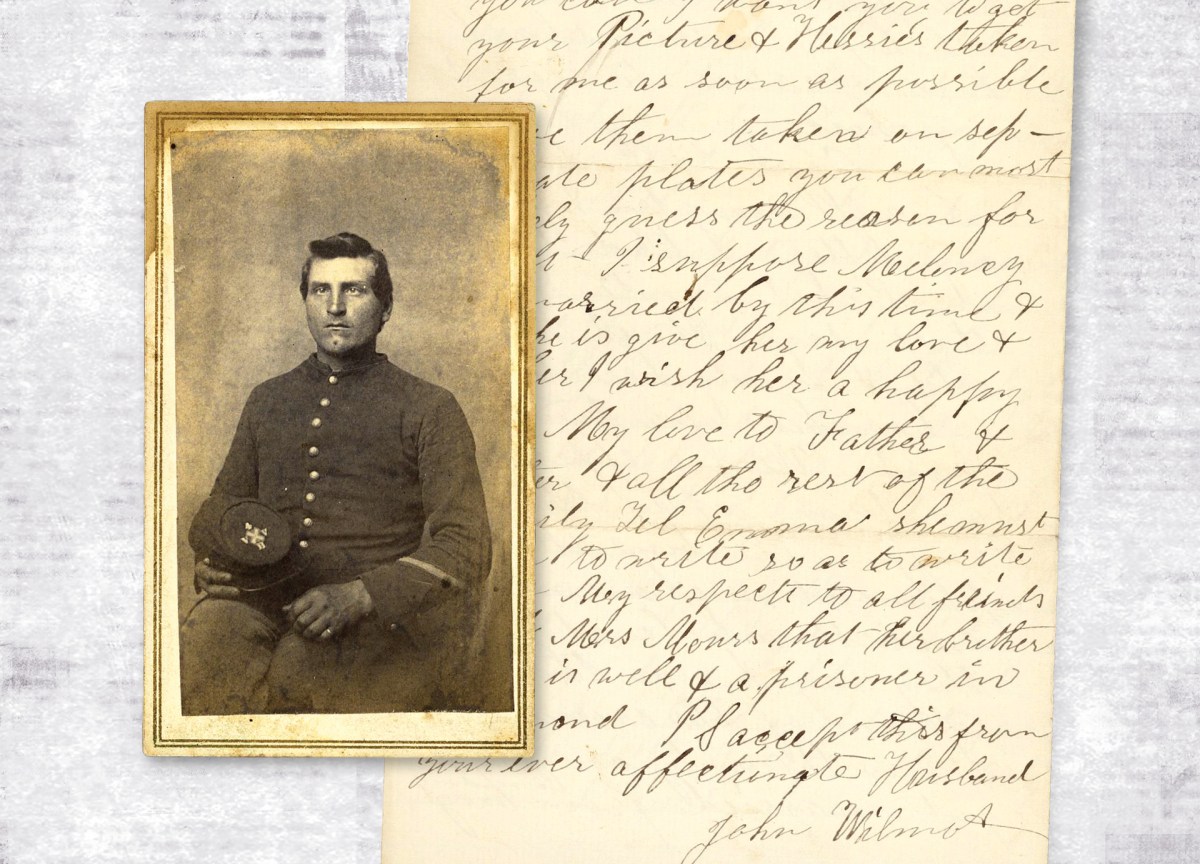 your Picture & Herries taken
for me as soon as possible
them taken on sep-
ate plates you can most
ly guess the reason for
I suppose Meloney
arried by this time &
he is give her my love &
er I wish her a happy
My love to Father &
er & all the rest of the
ily Tel Emma she must
to write so as to write
My respects to all friends
Mrs Mours that her brother
is well & a prisoner in
mond P S accept this from
your ever affectungte Husband
John Wilmot